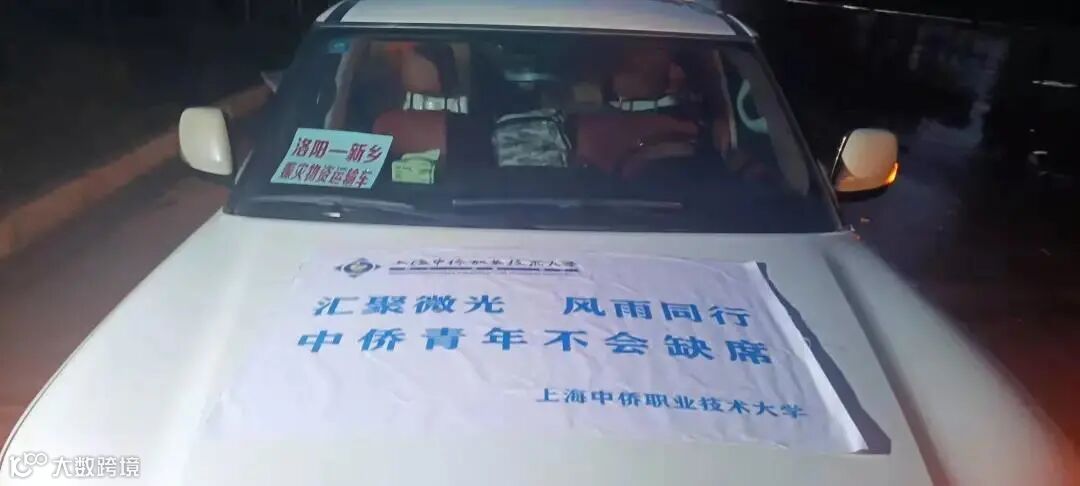 洛阳一新乡
赈灾物资运输车
上海中侨职业技术大学
汇聚微光 风雨同行
中侨青年不会缺席
上海中侨职业技术大学
大数跨境